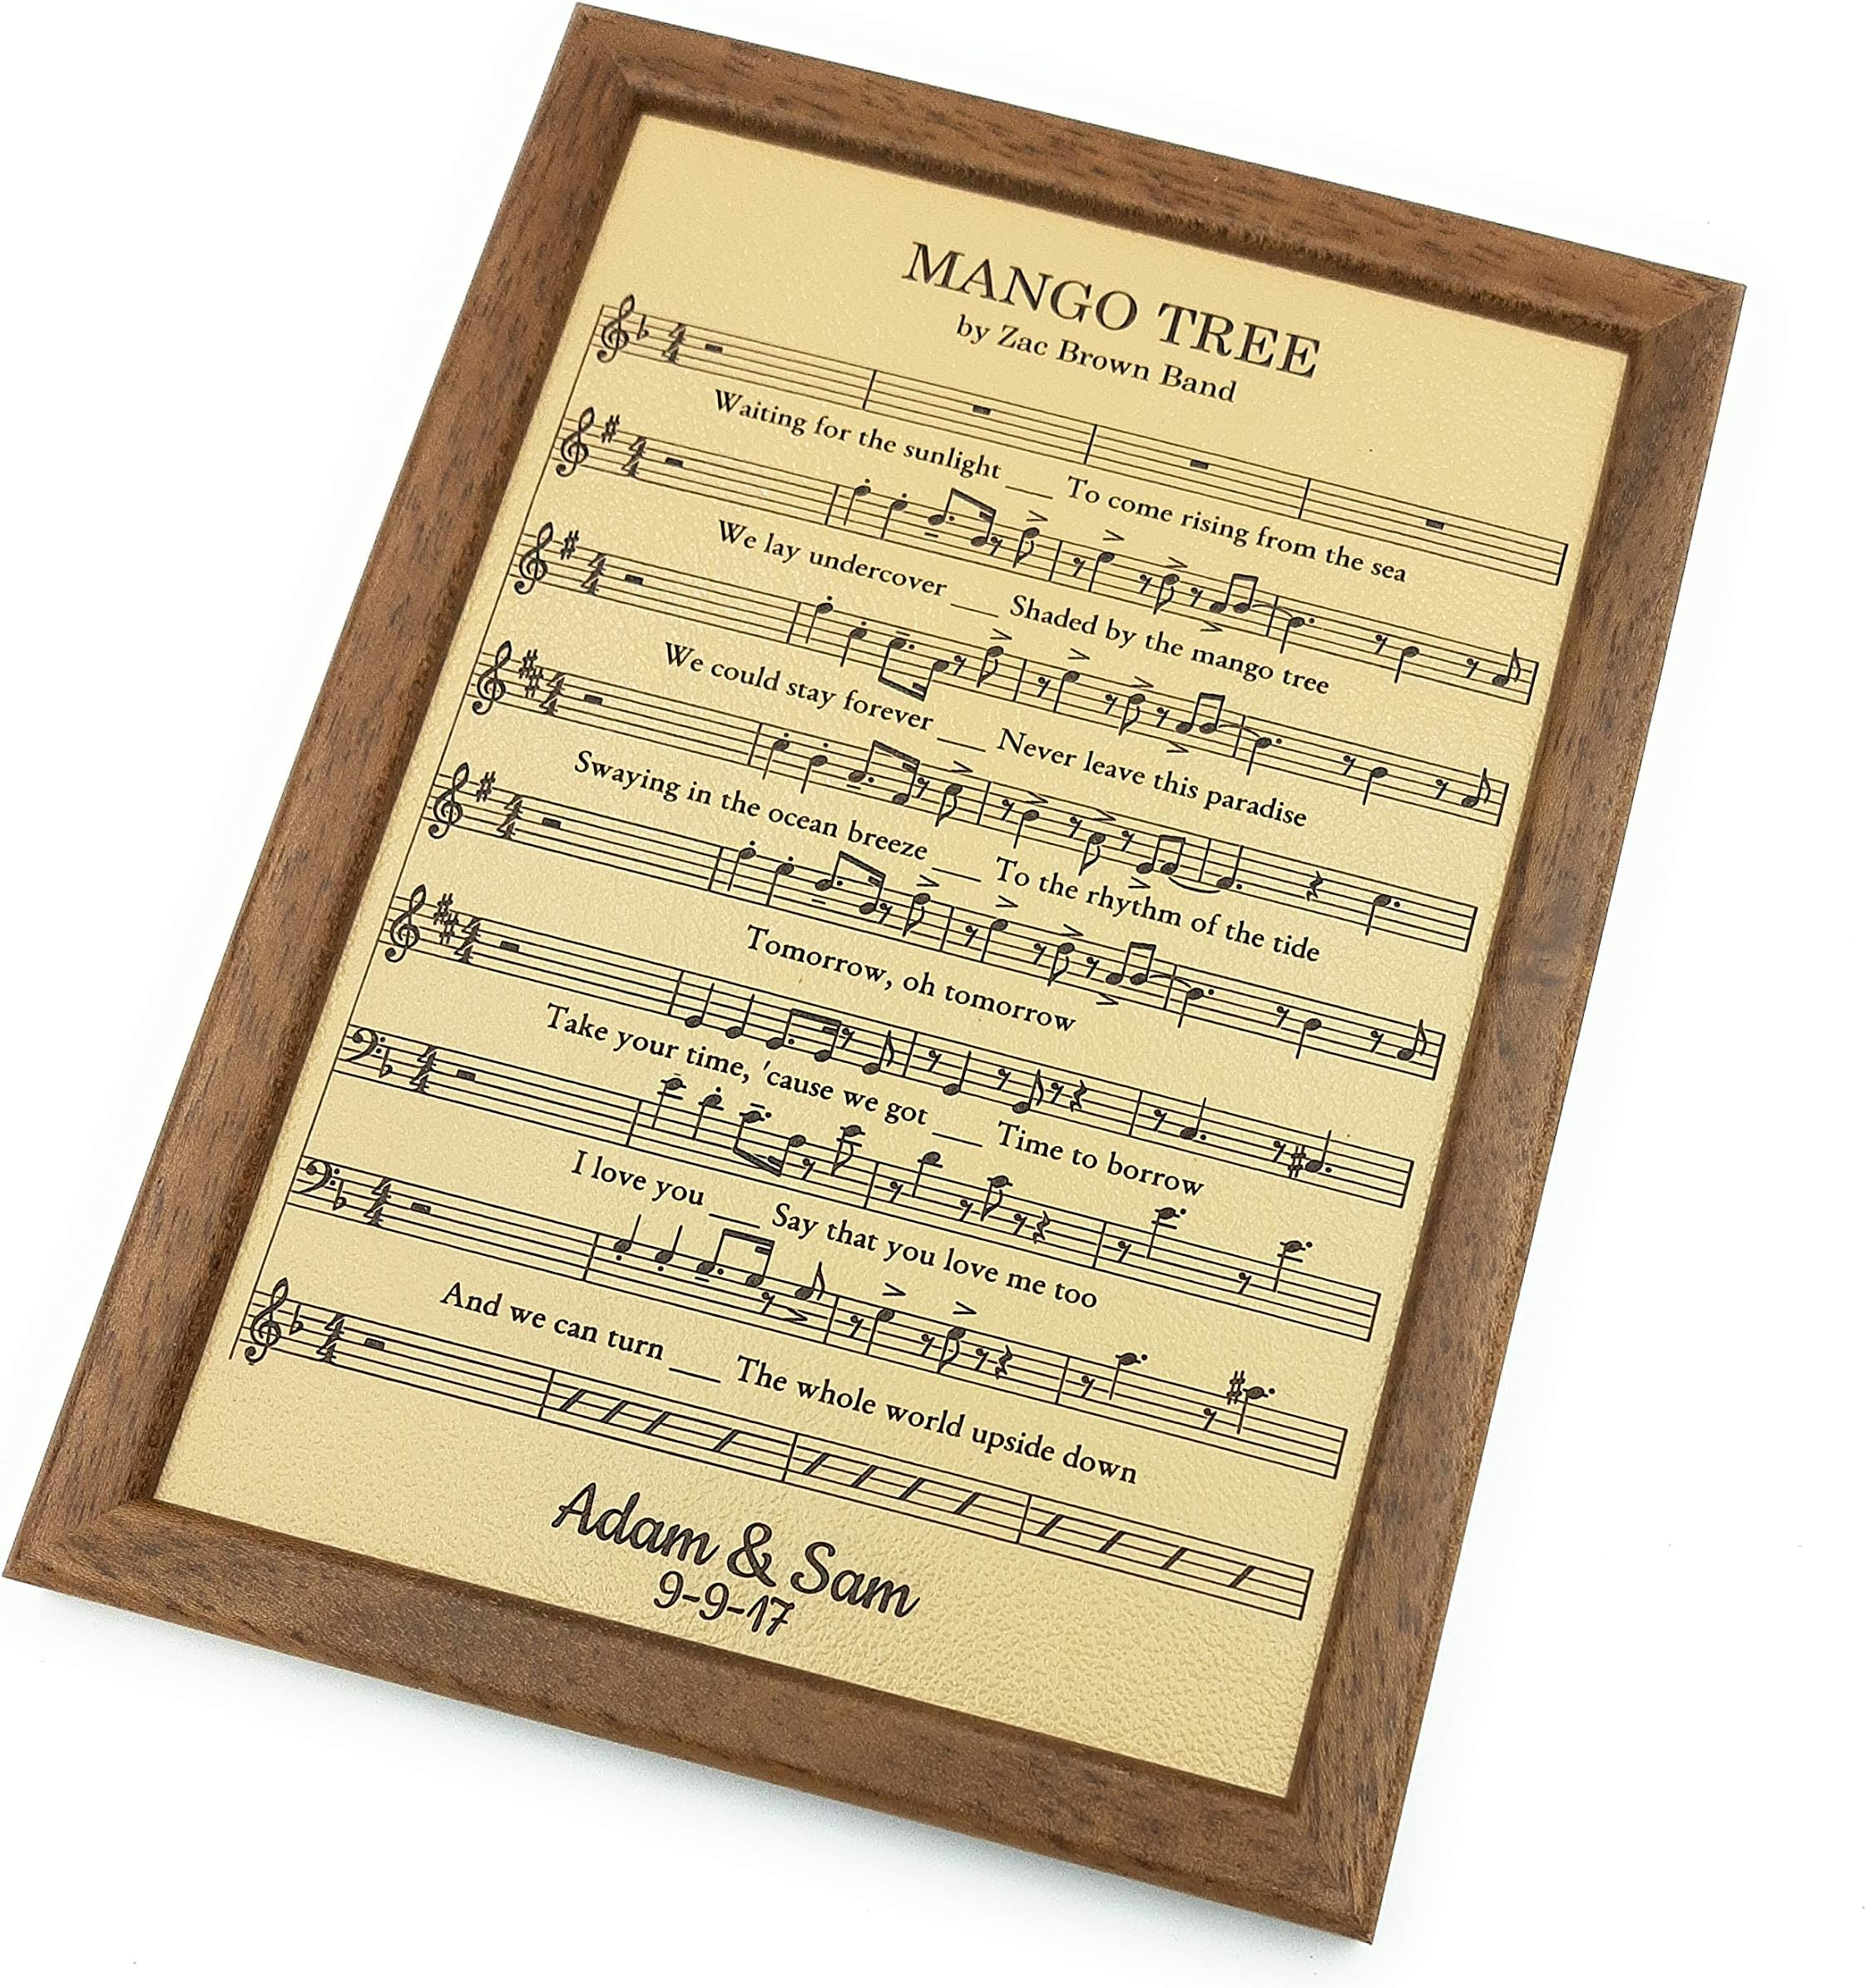 MANGO TREE
by Zac Brown Band
Waiting for the sunlight ___ To come rising from the sea
We lay undercover ___ Shaded by the mango tree
We could stay forever ___ Never leave this paradise
Swaying in the ocean breeze ___ To the rhythm of the tide
Tomorrow, oh tomorrow
Take your time, 'cause we got ___ Time to borrow
I love you ___ Say that you love me too
And we can turn ___ The whole world upside down
Adam & Sam
9-9-17